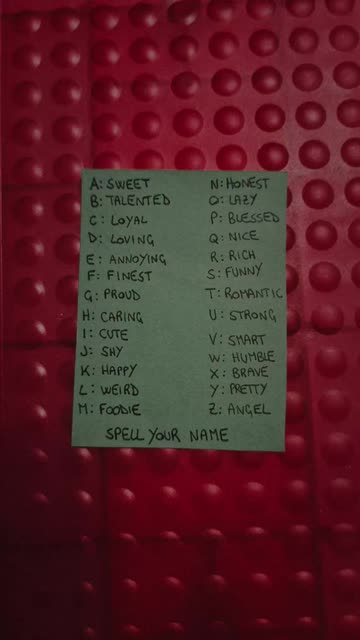 A: SWEET
B: TALENTED
C: LOYAL
D: LOVING
E: ANNOYING
F: FINEST
G: PROUD
H: CARING
I: CUTE
J: SHY
K: HAPPY
L: WEIRD
M: FOODIE
N: HONEST
O: LAZY
P: BLESSED
Q: NICE
R: RICH
S: FUNNY
T: ROMANTIC
U: STRONG
V: SMART
W: HUMBLE
X: BRAVE
Y: PRETTY
Z: ANGEL
SPELL YOUR NAME